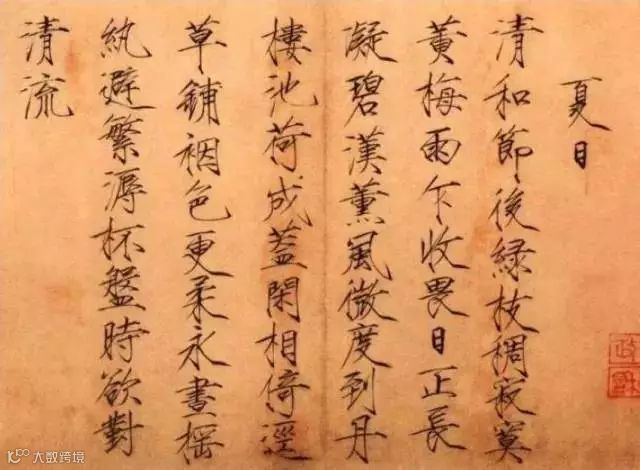 夏日
清和節後緑枝稠寂寞
黄梅雨乍收畏日正長
凝碧漢薰風微度到丹
樓池荷成蓋閑相倚逕
草鋪裀色更柔永晝搖
紈避繁溽杯盤時欲對
清流
大数跨境